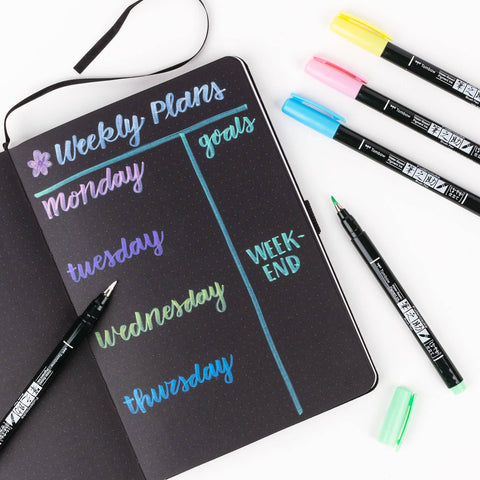 Weekly Plans
goals
Monday
tuesday
WEEK-
END
wednesday
thursday
Tombow
Tombow
Tombow